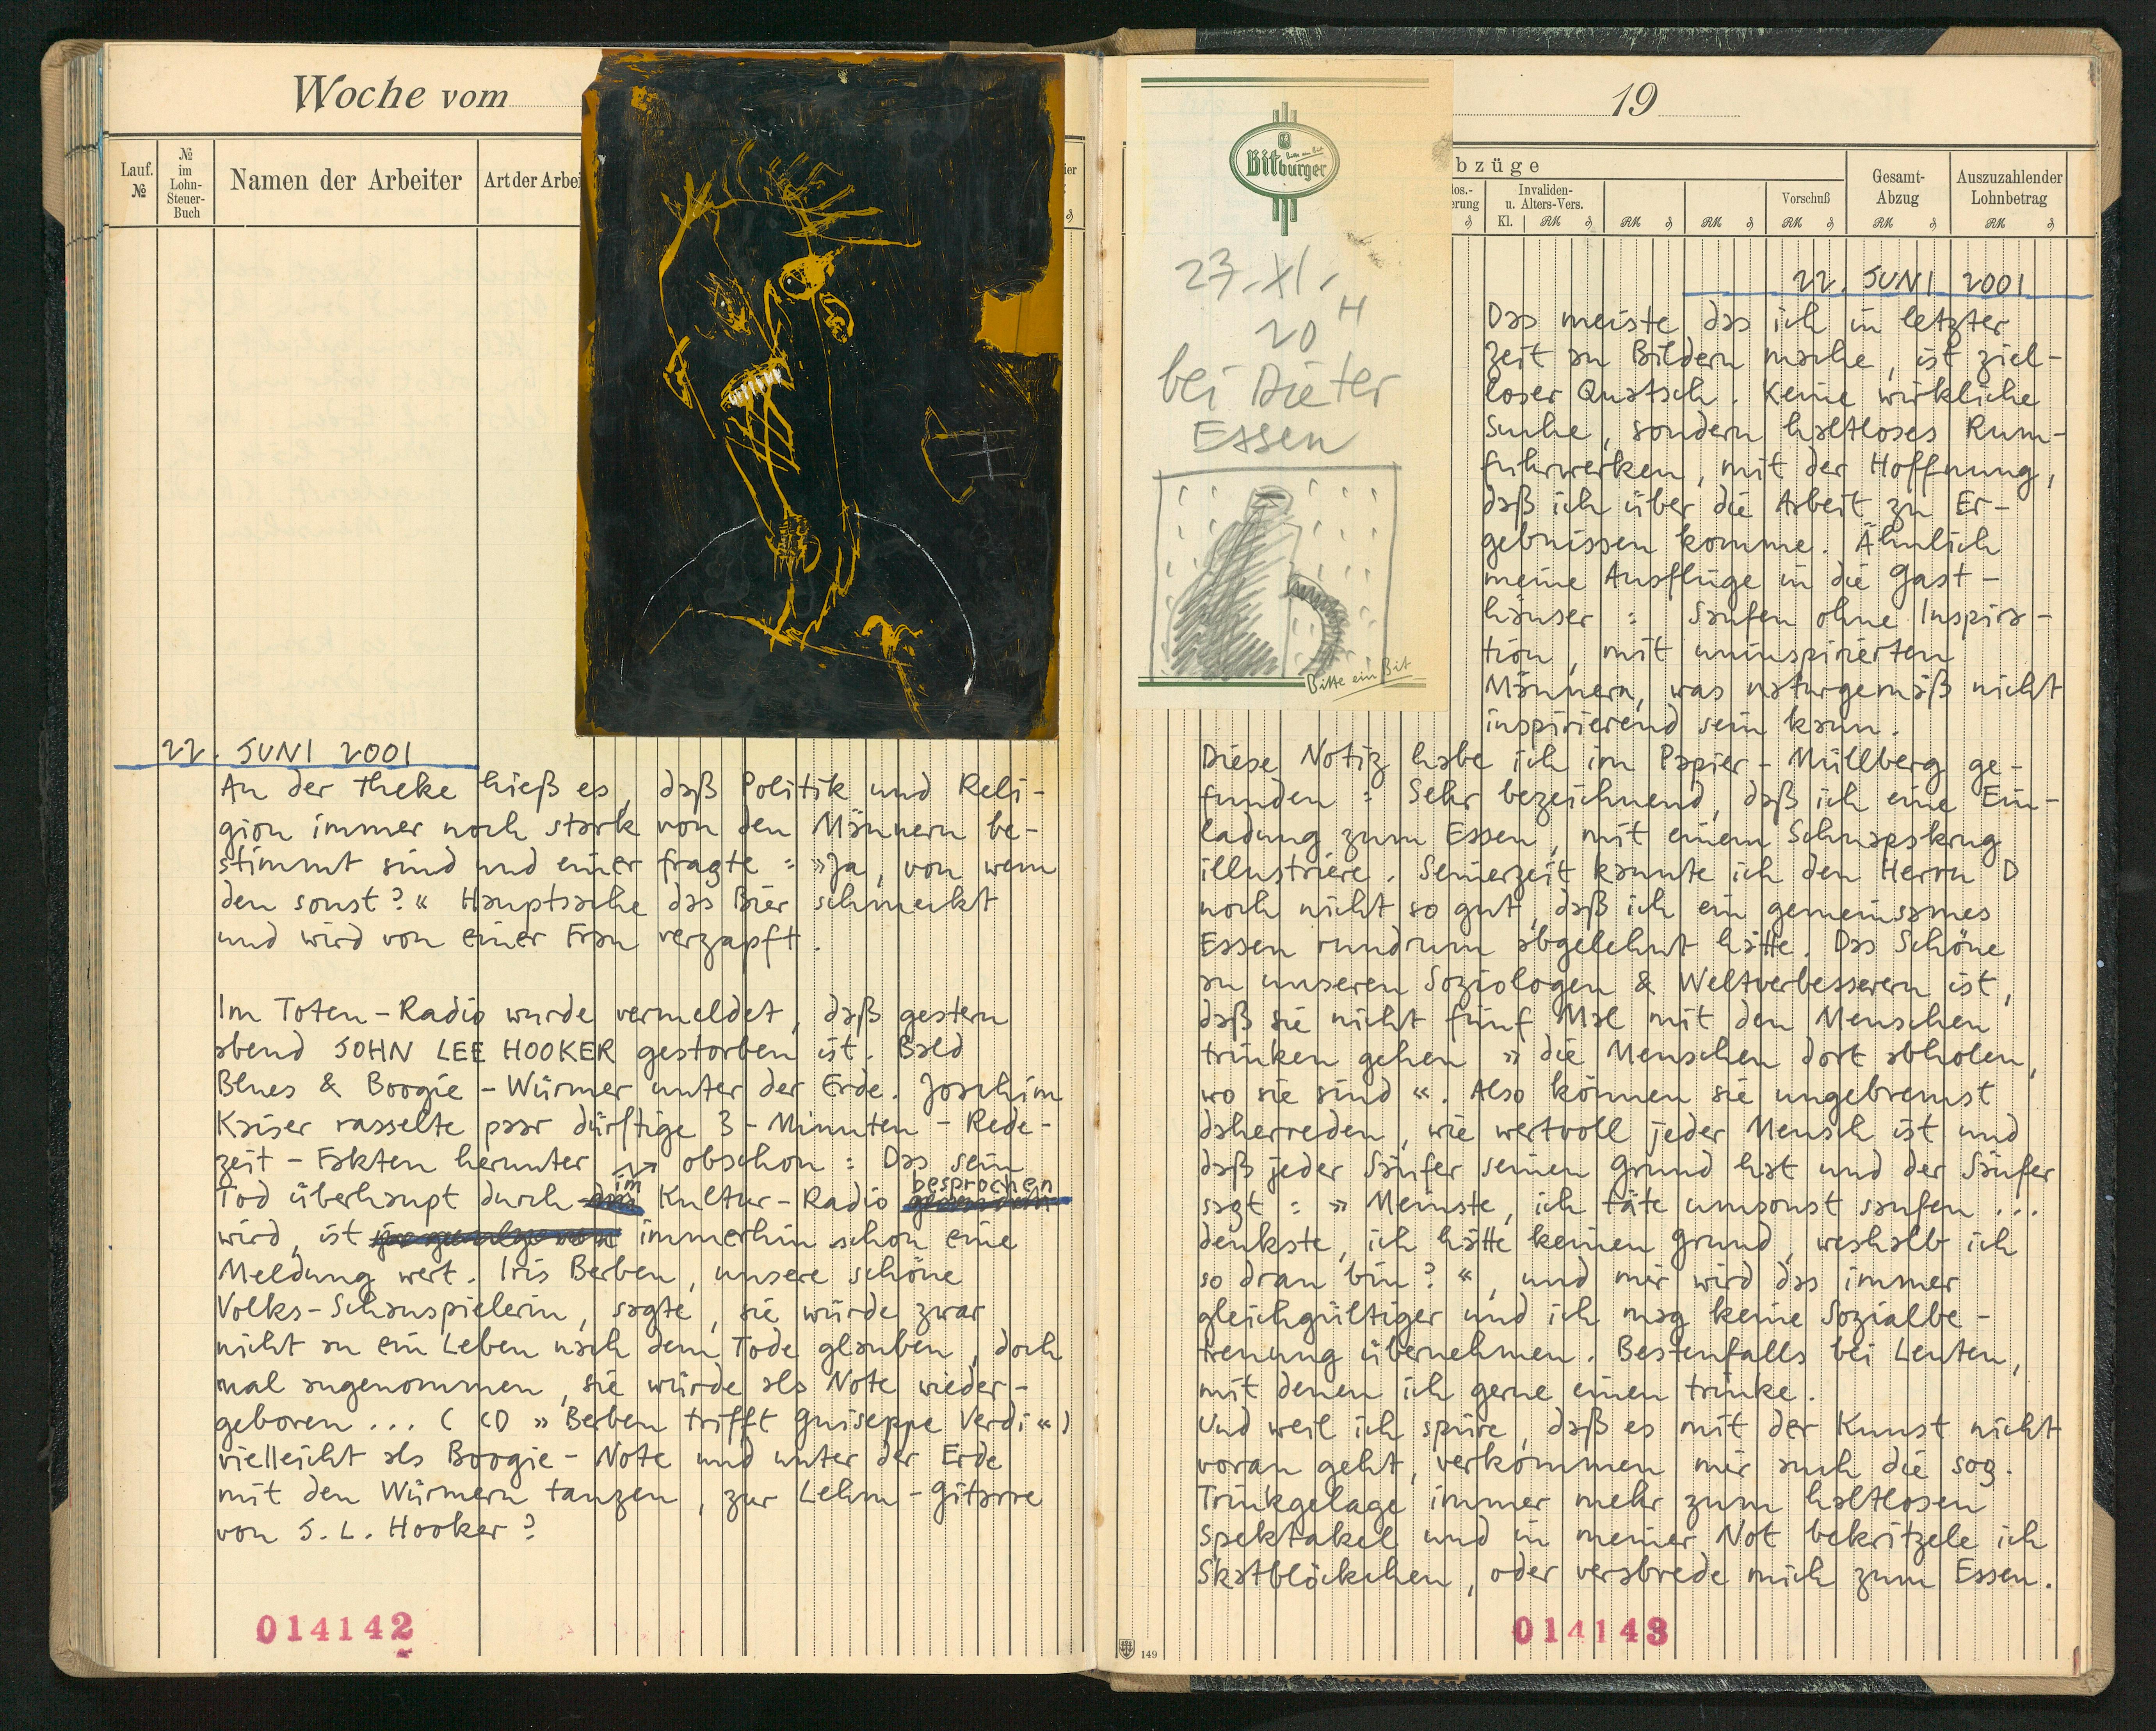 Woche vom
Lauf. №
№ im Lohn-Steuer-Buch
Namen der Arbeiter
Art der Arbei
22. JUNI 2001
An der Theke hieß es, daß Politik und Reli-
gion immer noch stark von den Männern be-
stimmt sind und einer fragte: »Ja, von wem
den sonst?« Hauptsache das Bier schmeckt
und wird von einer Frau verzapft.
Im Toten-Radio wurde vermeldet, daß gestern
abend JOHN LEE HOOKER gestorben ist. Bald
Blues & Boogie-Würmer unter der Erde. Joachim
Kaiser rasselte paar dürftige 3-Minuten-Rede-
zeit-Fakten herunter obschon: Das sein
im besprochen
Tod überhaupt durch Kultur-Radio
wird, ist immerhin schon eine
Meldung wert. Iris Berben, unsere schöne
Volks-Schauspielerin, sagte, sie würde zwar
nicht an ein Leben nach dem Tode glauben, doch
mal angenommen, sie würde als Note wieder-
geboren... (CD »Berben trifft Guiseppe Verdi«)
vielleicht als Boogie-Note und unter der Erde
mit den Würmern tanzen, zur Lehm-Gitarre
von J. L. Hooker?
014142
Bitburger
Bitte ein Bit
23. XI.
20 H
bei Dieter
Essen
Bitte ein Bit
19
bzüge
los.-
erung
Invaliden-
u. Alters-Vers.
Vorschuß
Gesamt-
Abzug
Auszuzahlender
Lohnbetrag
Kl. RM ₰ RM ₰ RM ₰ RM ₰ RM ₰ RM ₰
22. JUNI 2001
Das meiste, das ich in letzter
Zeit an Bildern mache, ist ziel-
loser Quatsch. Keine wirkliche
Suche, sondern haltloses Rum-
fuhrwerken, mit der Hoffnung,
daß ich über die Arbeit zu Er-
gebnissen komme. Ähnlich
meine Ausflüge in die Gast-
häuser: Saufen ohne Inspira-
tion, mit uninspirierten
Männern, was naturgemäß nicht
inspirierend sein kann.
Diese Notiz habe ich im Papier-Müllberg ge-
funden: Sehr bezeichnend, daß ich eine Ein-
ladung zum Essen, mit einem Schnapskrug
illustriere. Seinerzeit kannte ich den Herrn D
noch nicht so gut, daß ich ein gemeinsames
Essen rundrum abgelehnt hätte. Das Schöne
an unseren Soziologen & Weltverbesserern ist,
daß sie nicht fünf Mal mit den Menschen
trinken gehen »die Menschen dort abholen,
wo sie sind«. Also können sie ungebremst
daherreden, wie wertvoll jeder Mensch ist und
daß jeder Säufer seinen Grund hat und der Säufer
sagt: »Meinste, ich täte umsonst saufen...
denkste, ich hätte keinen Grund, weshalb ich
so dran bin?«, und mir wird das immer
gleichgültiger und ich mag keine Sozialbe-
treuung übernehmen. Bestenfalls bei Leuten,
mit denen ich gerne einen trinke.
Und weil ich spüre, daß es mit der Kunst nicht
voran geht, verkommen mir auch die sog.
Trinkgelage immer mehr zum haltlosen
Spektakel und in meiner Not bekritzele ich
Skatblöckchen, oder verabrede mich zum Essen.
149
014143